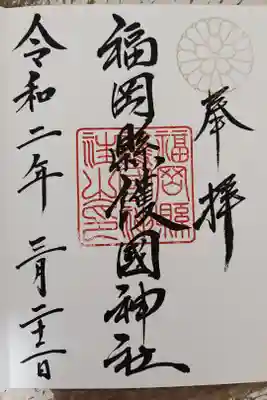 奉拝
福岡縣護國神社
令和二年 三月二十一日
福岡縣
社之印